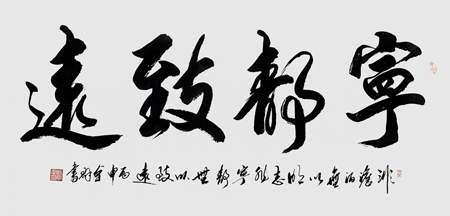 寧靜致遠
非澹泊無以明志非寧靜無以致遠丙申書